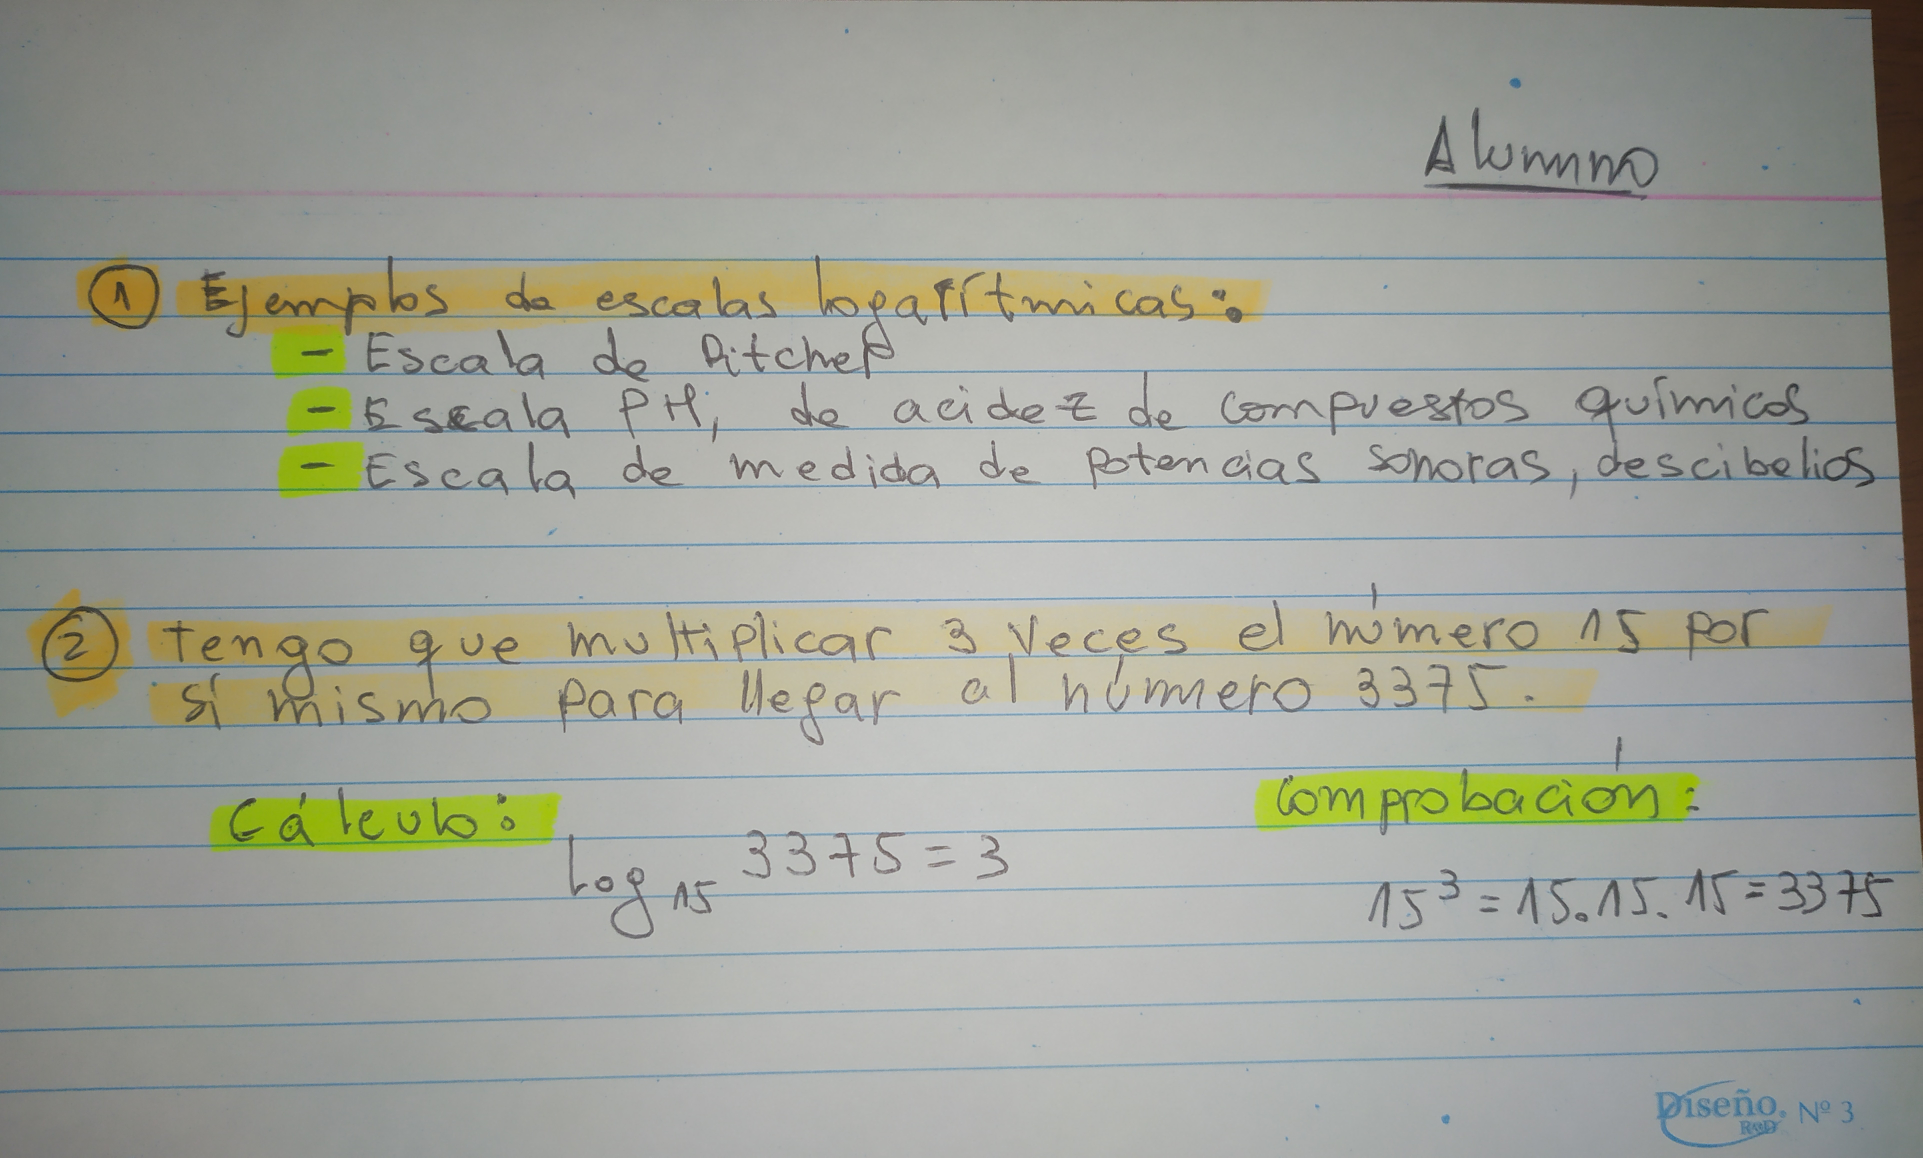 Alumno
1 Ejemplos de escalas logarítmicas:
- Escala de Ritcher
- Escala PH, de acidez de compuestos químicos
- Escala de medida de potencias sonoras, descibelios
2 tengo que multiplicar 3 veces el número 15 por
sí mismo para llegar al número 3375.
Cálculo:
log₁₅ 3375 = 3
Comprobación:
15³ = 15.15.15 = 3375
Diseño Nº 3
R&D